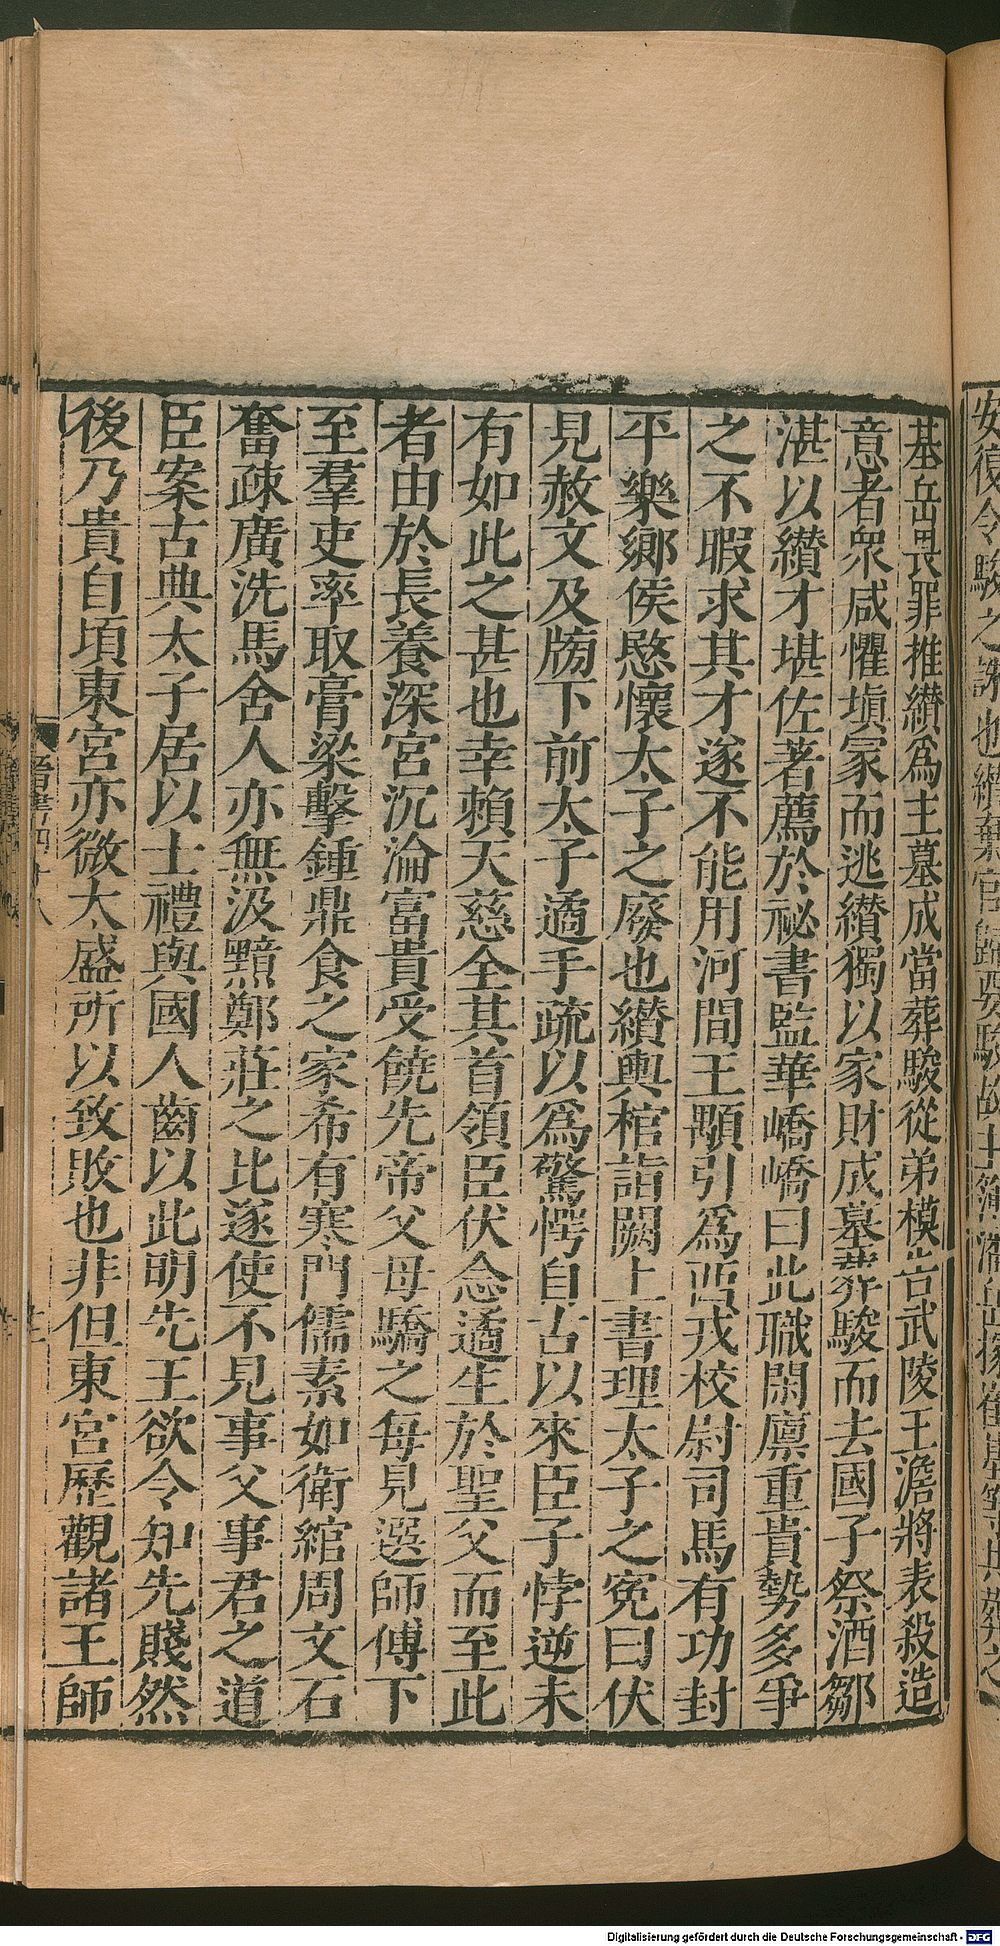 安復令駿之誅也纘棄官歸要駿故主簿潘岳掾崔基等共葬之
基岳畏罪推纘爲主墓成當葬駿從弟模告武陵王澹將表殺造
意者衆咸懼塡冢而逃纘獨以家財成墓葬駿而去國子祭酒鄒
湛以纘才堪佐著薦於祕書監華嶠嶠曰此職閑廪重貴勢多爭
之不暇求其才遂不能用河間王顒引爲西戎校尉司馬有功封
平樂鄉侯愍懷太子之廢也纘輿棺詣闕上書理太子之寃曰伏
見赦文及牓下前太子遹手疏以爲驚愕自古以來臣子悖逆未
有如此之甚也幸賴天慈全其首領臣伏念遹生於聖父而至此
者由於長養深宮沉淪富貴受饒先帝父母驕之每見選師傅下
至羣吏率取膏梁擊鍾鼎食之家希有寒門儒素如衛綰周文石
奮疎廣洗馬舍人亦無汲黯鄭莊之比遂使不見事父事君之道
臣案古典太子居以士禮與國人齒以此明先王欲令知先賤然
後乃貴自頃東宮亦微太盛所以致敗也非但東宮歷觀諸王師
晉書四十八
Digitalisierung gefördert durch die Deutsche Forschungsgemeinschaft - DFG